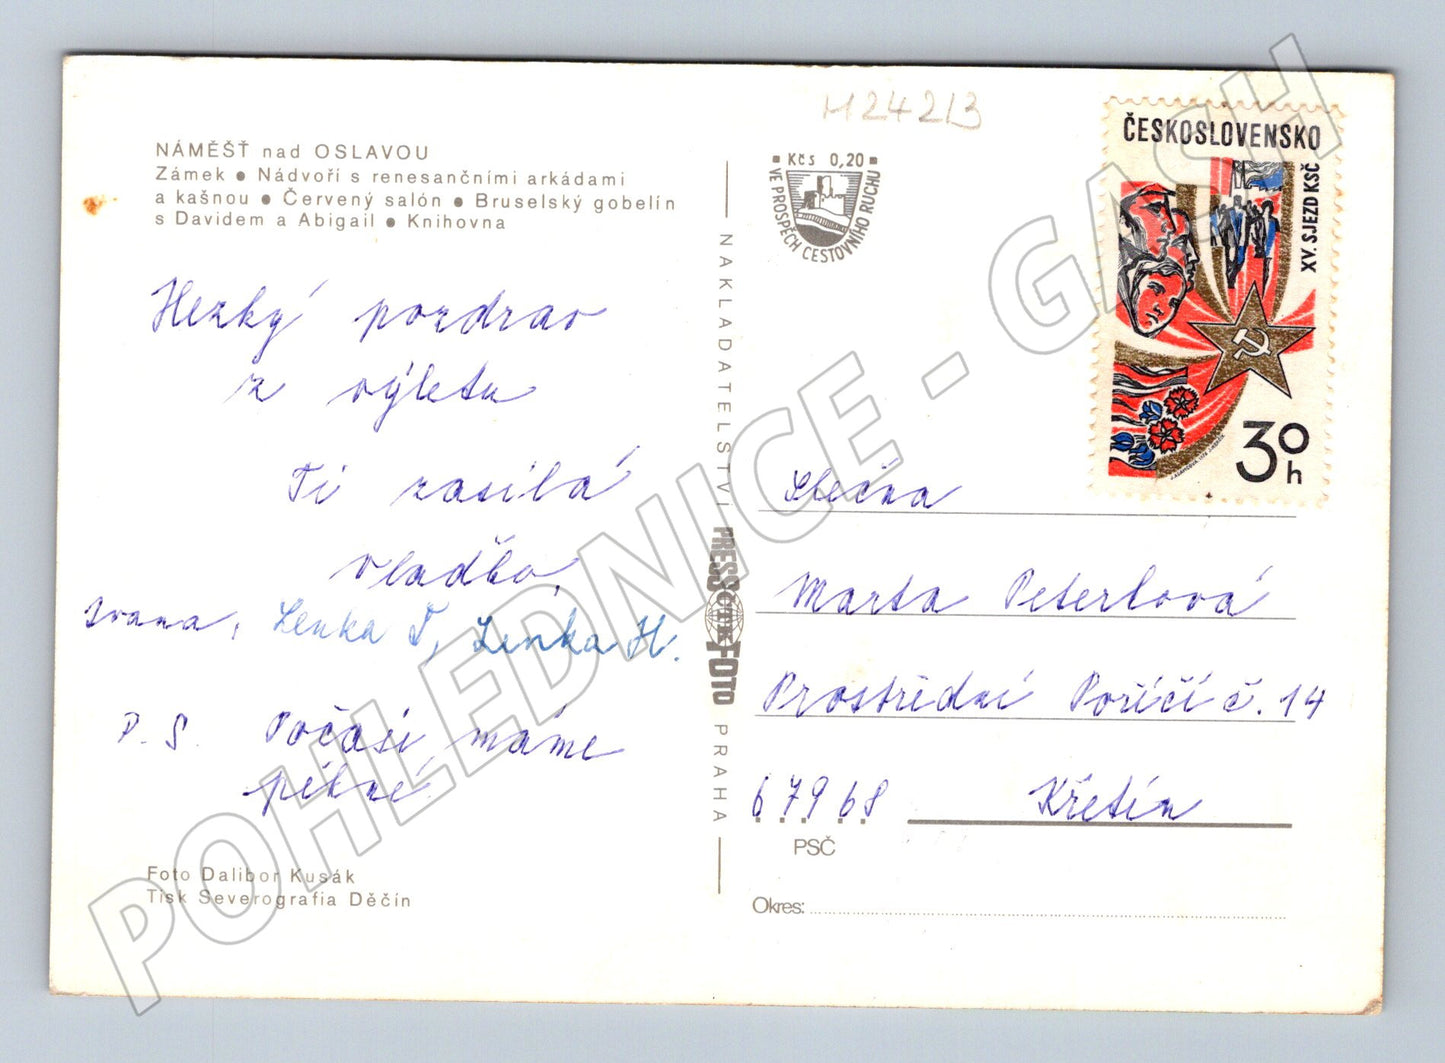 M24213
NÁMĚŠŤ nad OSLAVOU
Zámek ● Nádvoří s renesančními arkádami
a kašnou ● Červený salón ● Bruselský gobelín
s Davidem a Abigail ● Knihovna
Hezký pozdrav
z výletu
Ti zasílá
Vladka,
Ivana, Lenka T, Lenka H.
P. S. Počasí máme
pěkné
Foto Dalibor Kusák
Tisk Severografia Děčín
NAKLADATELSTVÍ
PRESSFOTO
ČTK
PRAHA
Kčs 0,20
VE PROSPĚCH CESTOVNÍHO RUCHU
ČESKOSLOVENSKO
XV. SJEZD KSČ
30h
Slečna
Marta Peterlová
Prostřední Poříčí č. 14
67968 Křetín
PSČ
Okres:
POHLEDNICE - GASH